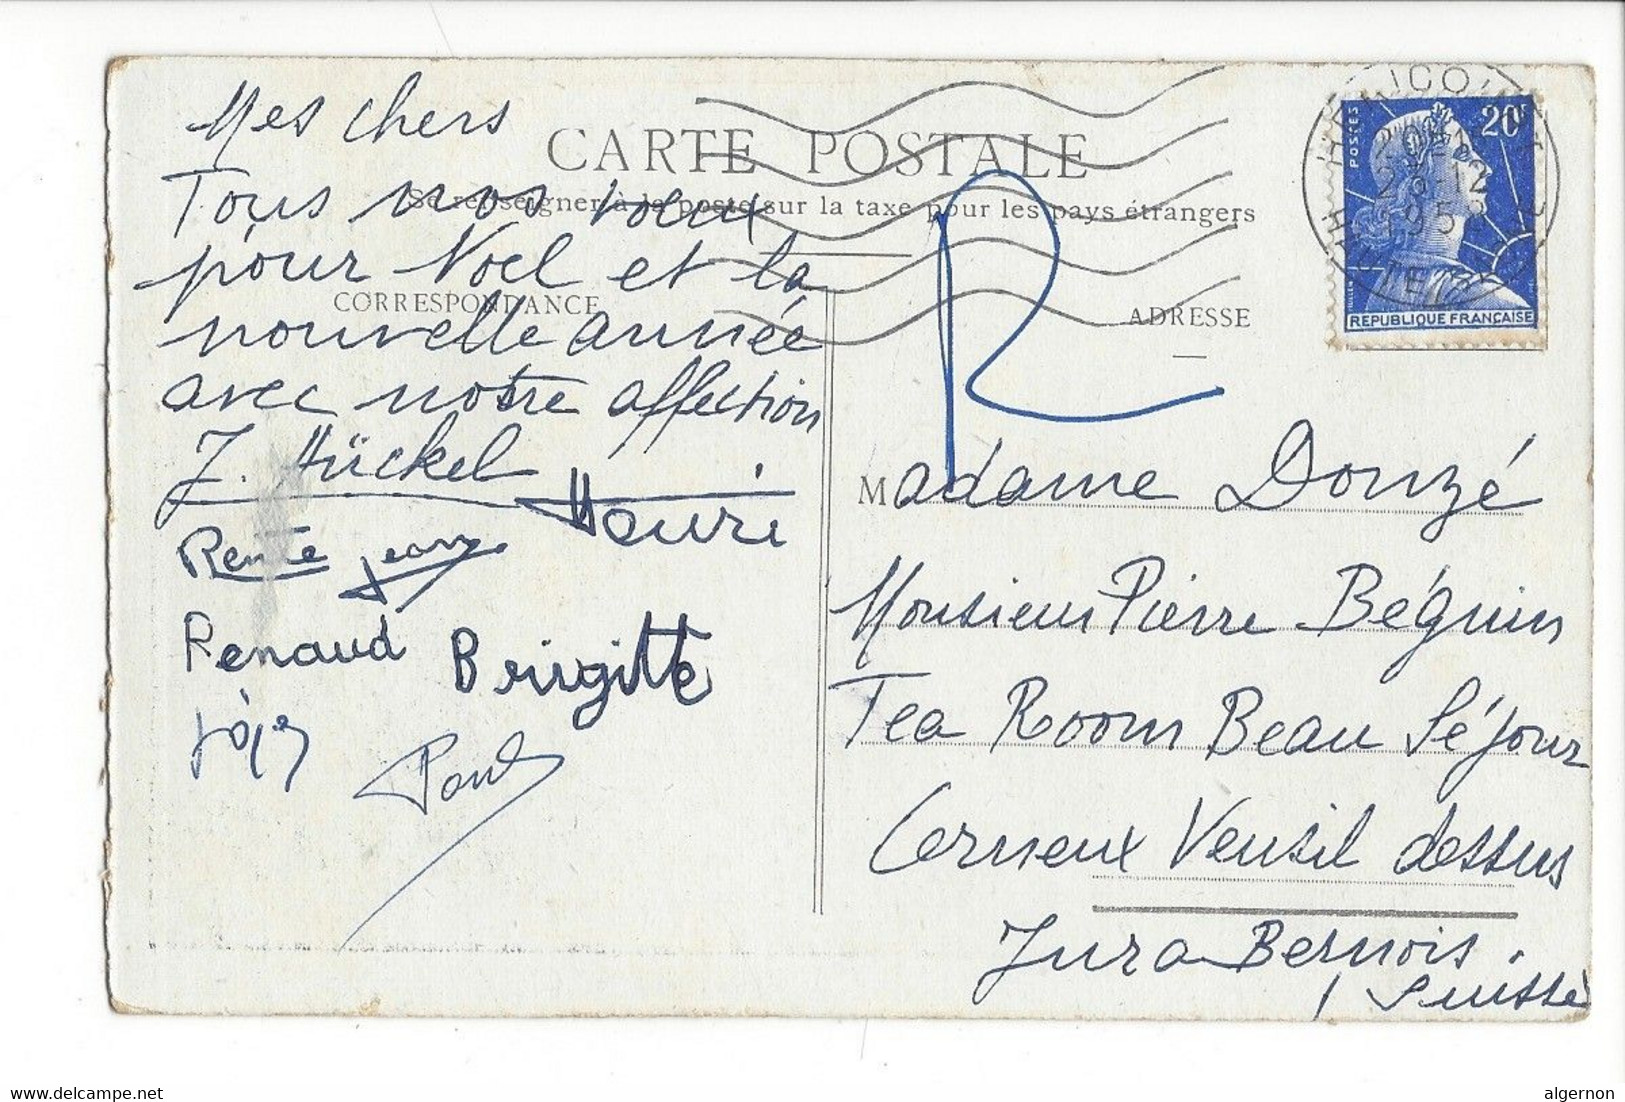 Mes chers
CARTE POSTALE
Tous nos voeux
Se renseigner à la poste sur la taxe pour les pays étrangers
pour Noel et la
CORRESPONDANCE
nouvelle année
avec notre affection
J. Hückel
Henri
Jean
Renaud Brigitte
Paul
R
ADRESSE
POSTES
20F
26-12
195
HAUTE
REPUBLIQUE FRANÇAISE
Madame Donzé
Monsieur Pierre Béguin
Tea Room Beau Séjour
Cerneux Veusil dessus
Jura Bernois.
Suisse
www.delcampe.net
algernon